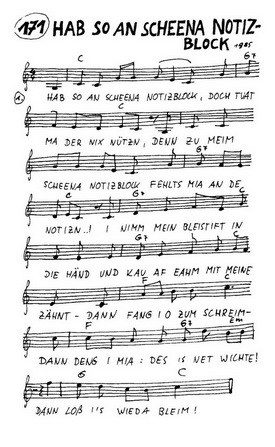 171 HAB SO AN SCHEENA NOTIZ-
BLOCK 1985
C G7
1. HAB SO AN SCHEENA NOTIZBLOCK, DOCH TUAT
C
MA DER NIX NÜTZN, DENN ZU MEIM
G7
SCHEENA NOTIZBLOCK FEHLTS MIA AN DE
C C
NOTIZN..! I NIMM MEIN BLEISTIFT IN
G7 C
DIE HÄND UND KAU AF EAHM MIT MEINE
F C
ZÄHNT - DANN FANG I O ZUM SCHREIM-
F G7 Em
DANN DENG I MIA: DES IS NET WICHTE!
G C
DANN LOß I'S WIEDA BLEIM!